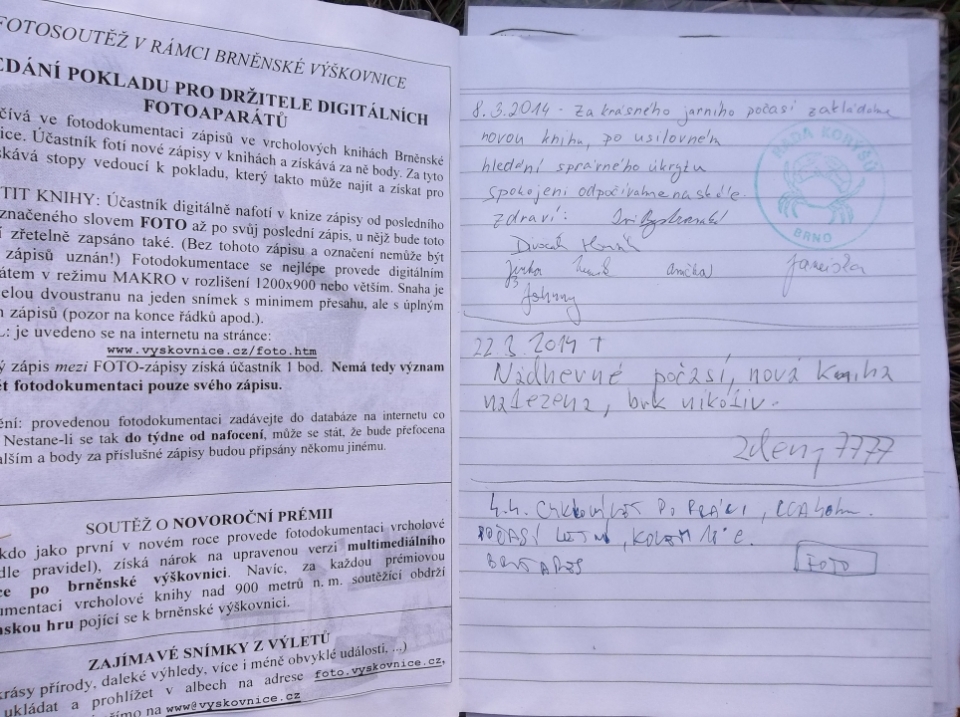 FOTOSOUTĚŽ V RÁMCI BRNĚNSKÉ VÝŠKOVNICE
EDÁNÍ POKLADU PRO DRŽITELE DIGITÁLNÍCH
FOTOAPARÁTŮ
čívá ve fotodokumentaci zápisů ve vrcholových knihách Brněnské
nice. Účastník fotí nové zápisy v knihách a získává za ně body. Za tyto
skává stopy vedoucí k pokladu, který takto může najít a získat pro
TIT KNIHY: Účastník digitálně nafotí v knize zápisy od posledního
značeného slovem FOTO až po svůj poslední zápis, u nějž bude toto
í zřetelně zapsáno také. (Bez tohoto zápisu a označení nemůže být
zápisů uznán!) Fotodokumentace se nejlépe provede digitálním
átem v režimu MAKRO v rozlišení 1200x900 nebo větším. Snaha je
elou dvoustranu na jeden snímek s minimem přesahu, ale s úplným
n zápisů (pozor na konce řádků apod.).
L: je uvedeno se na internetu na stránce:
www.vyskovnice.cz/foto.htm
ý zápis mezi FOTO-zápisy získá účastník 1 bod. Nemá tedy význam
ět fotodokumentaci pouze svého zápisu.
ění: provedenou fotodokumentaci zadávejte do databáze na internetu co
Nestane-li se tak do týdne od nafocení, může se stát, že bude přefocena
alším a body za příslušné zápisy budou připsány někomu jinému.
SOUTĚŽ O NOVOROČNÍ PRÉMII
kdo jako první v novém roce provede fotodokumentaci vrcholové
dle pravidel), získá nárok na upravenou verzi multimediálního
ce po brněnské výškovnici. Navíc, za každou prémiovou
umentaci vrcholové knihy nad 900 metrů n. m. soutěžící obdrží
nskou hru pojící se k brněnské výškovnici.
ZAJÍMAVÉ SNÍMKY Z VÝLETŮ
krásy přírody, daleké výhledy, více i méně obvyklé události, ...)
ukládat a prohlížet v albech na adrese foto.vyskovnice.cz,
římo na www@vyskovnice.cz
8.3.2014 - Za krásného jarního počasí zakládáme
novou knihu, po usilovném
hledání správného úkrytu
spokojeni odpočíváme na skále.
Zdraví:
Anička
Johny
RADA KORÝŠŮ
BRNO
22.3.2014 †
Nádherné počasí, nová kniha
nalezena, brk nikoliv.
Zdeny 7777
4.4. PO PRÁCI,
POČASÍ LETNÍ, KOLEM
FOTO